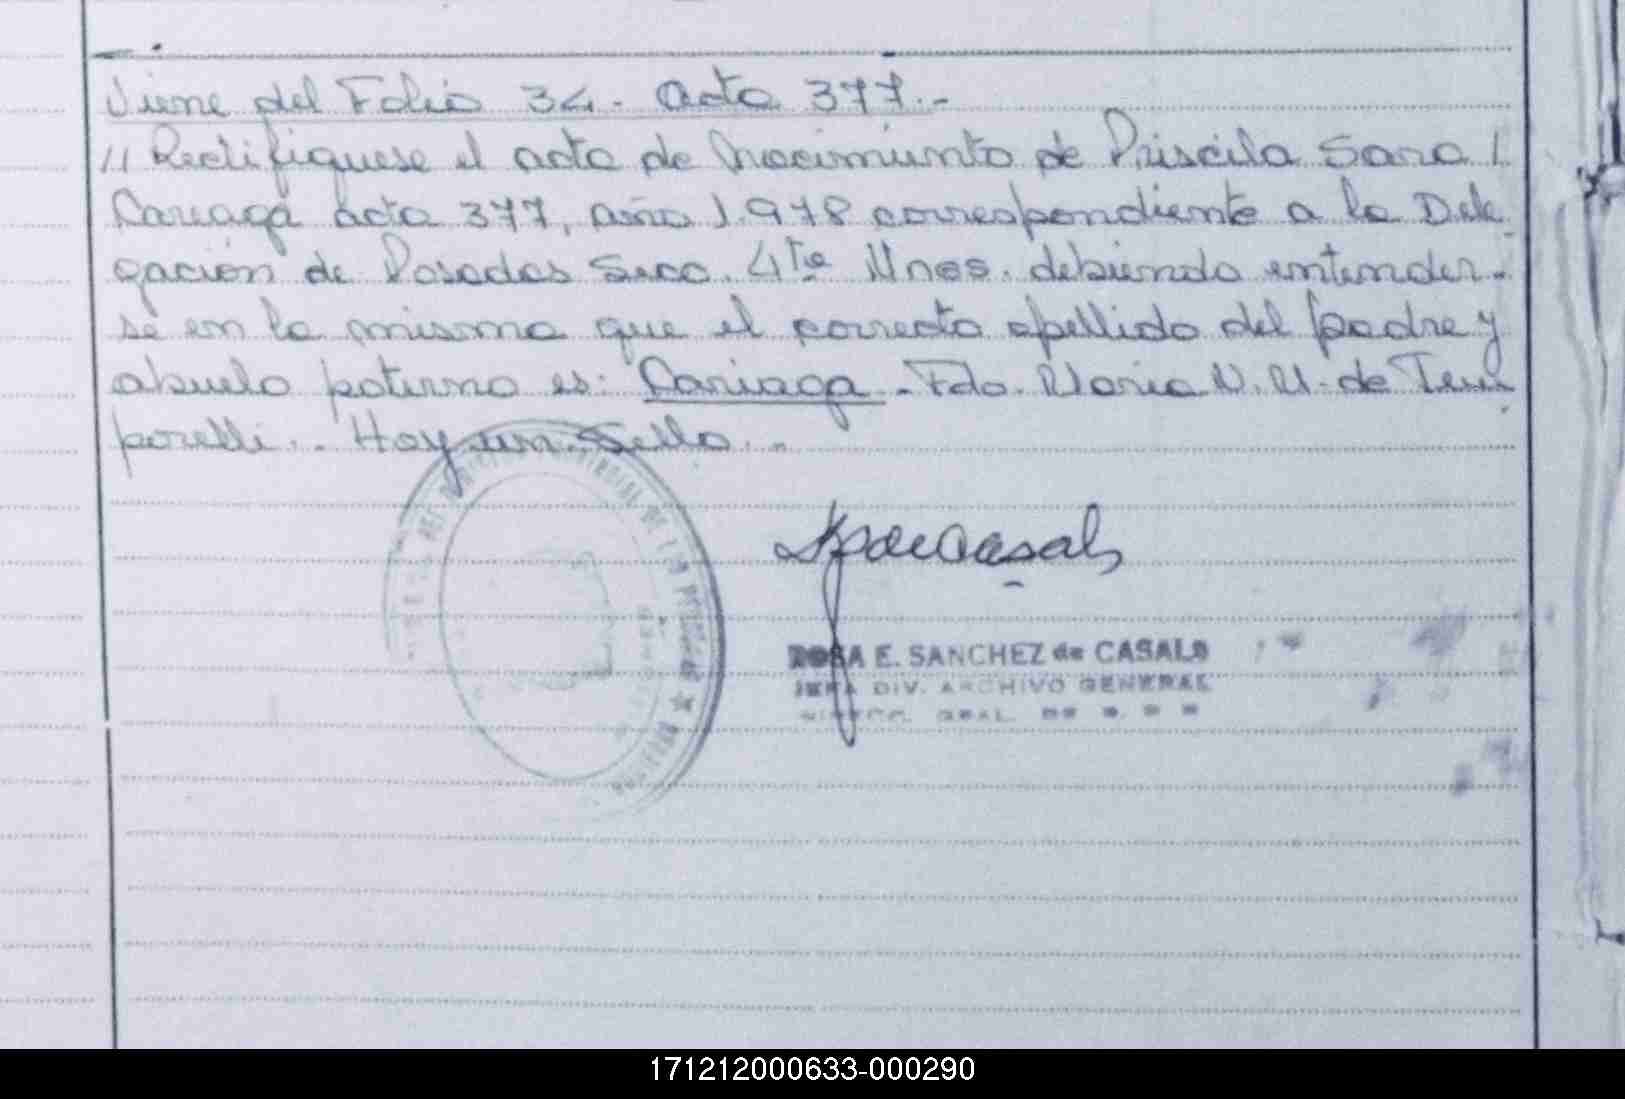 Viene del Folio 34. Acta 377.-
// Rectifíquese el acta de Nacimiento de Priscila Sara /
Cariaga acta 377, año 1.978 correspondiente a la Dele
gación de Posadas Secc. 4ta Mnes. debiendo entender-
se en la misma que el correcto apellido del padre y
abuelo paterno es: Cariaga - Fdo. Maria N. M. de Tem
porelli.. Hay un Sello..-
ROSA E. SANCHEZ de CASALS
JEFA DIV. ARCHIVO GENERAL
GRAL.
171212000633-000290